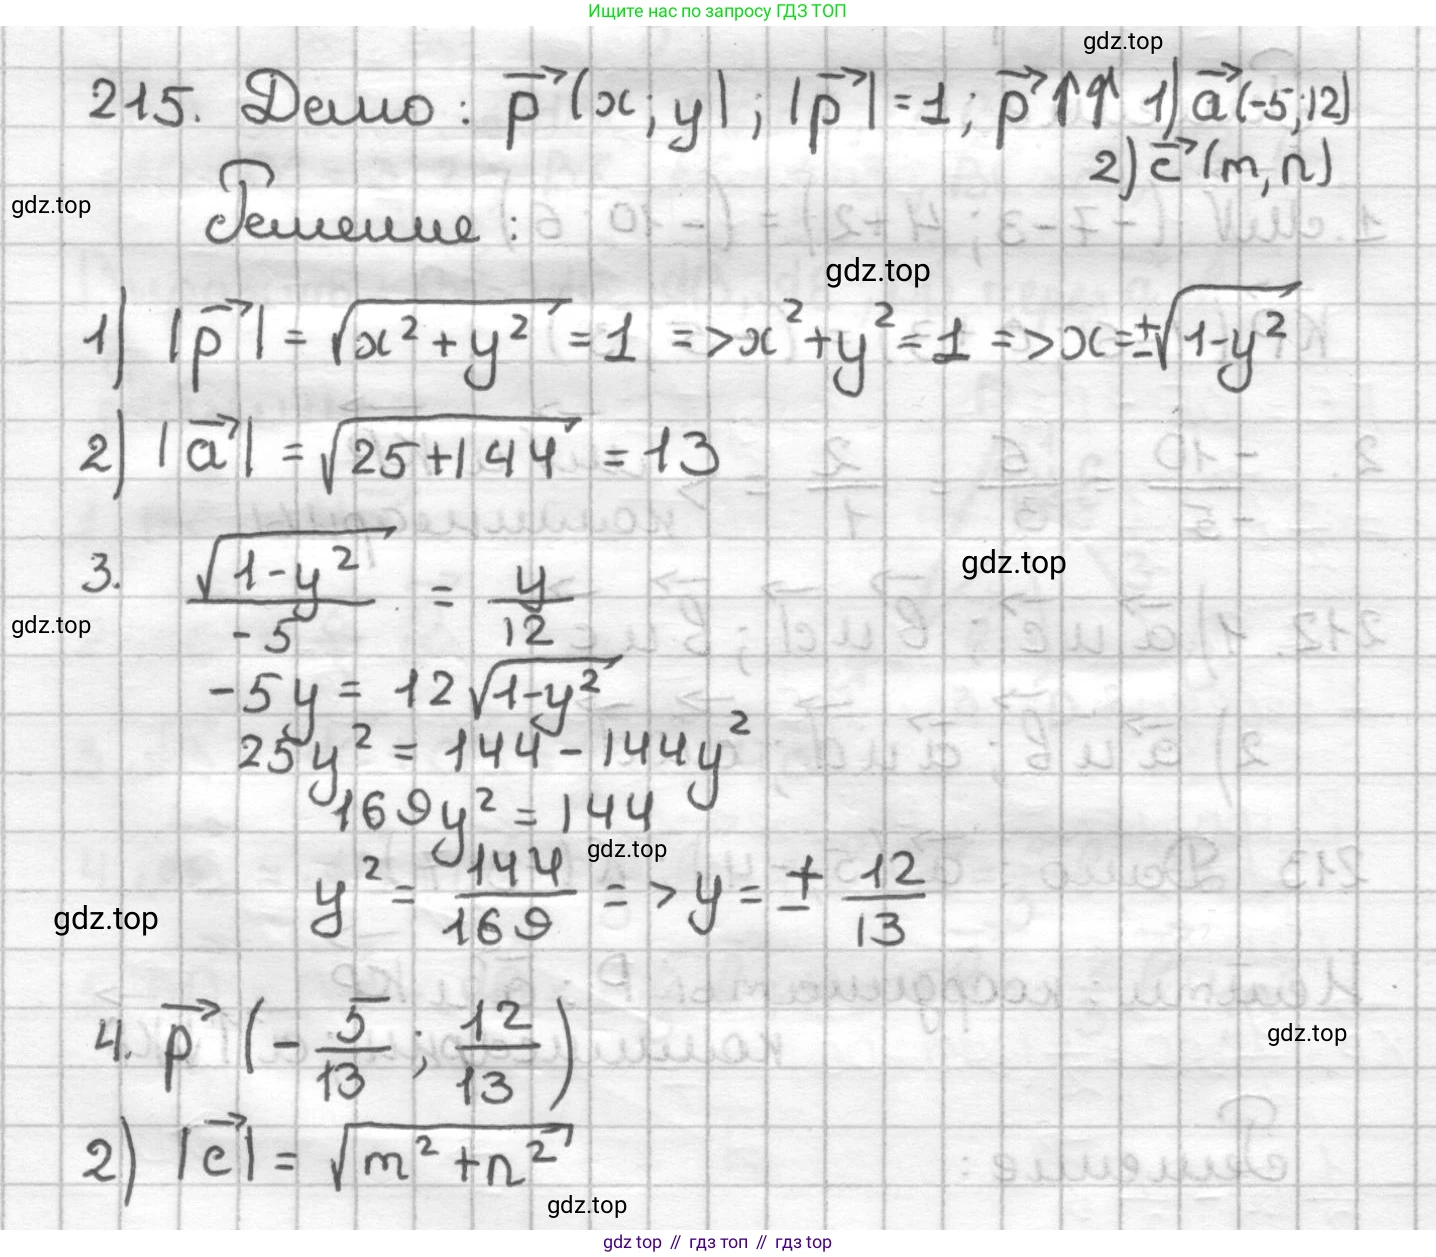 Ищите нас по запросу ГДЗ ТОП
gdz.top
215. Дано: p⃗ (x; y); |p⃗| = 1; p⃗ ↑↑ 1) a⃗ (-5; 12)
2) c⃗ (m, n)
gdz.top
Решение:
gdz.top
1) |p⃗| = √(x² + y²) = 1 => x² + y² = 1 => x = ±√(1-y²)
2) |a⃗| = √(25+144) = 13
3. √(1-y²)/-5 = y/12
gdz.top
gdz.top
-5y = 12√(1-y²)
25y² = 144 - 144y²
169y² = 144
gdz.top
y² = 144/169 => y = ± 12/13
gdz.top
4. p⃗ (-5/13; 12/13)
gdz.top
2) |c⃗| = √(m² + n²)
gdz.top
gdz top // гдз топ // гдз top